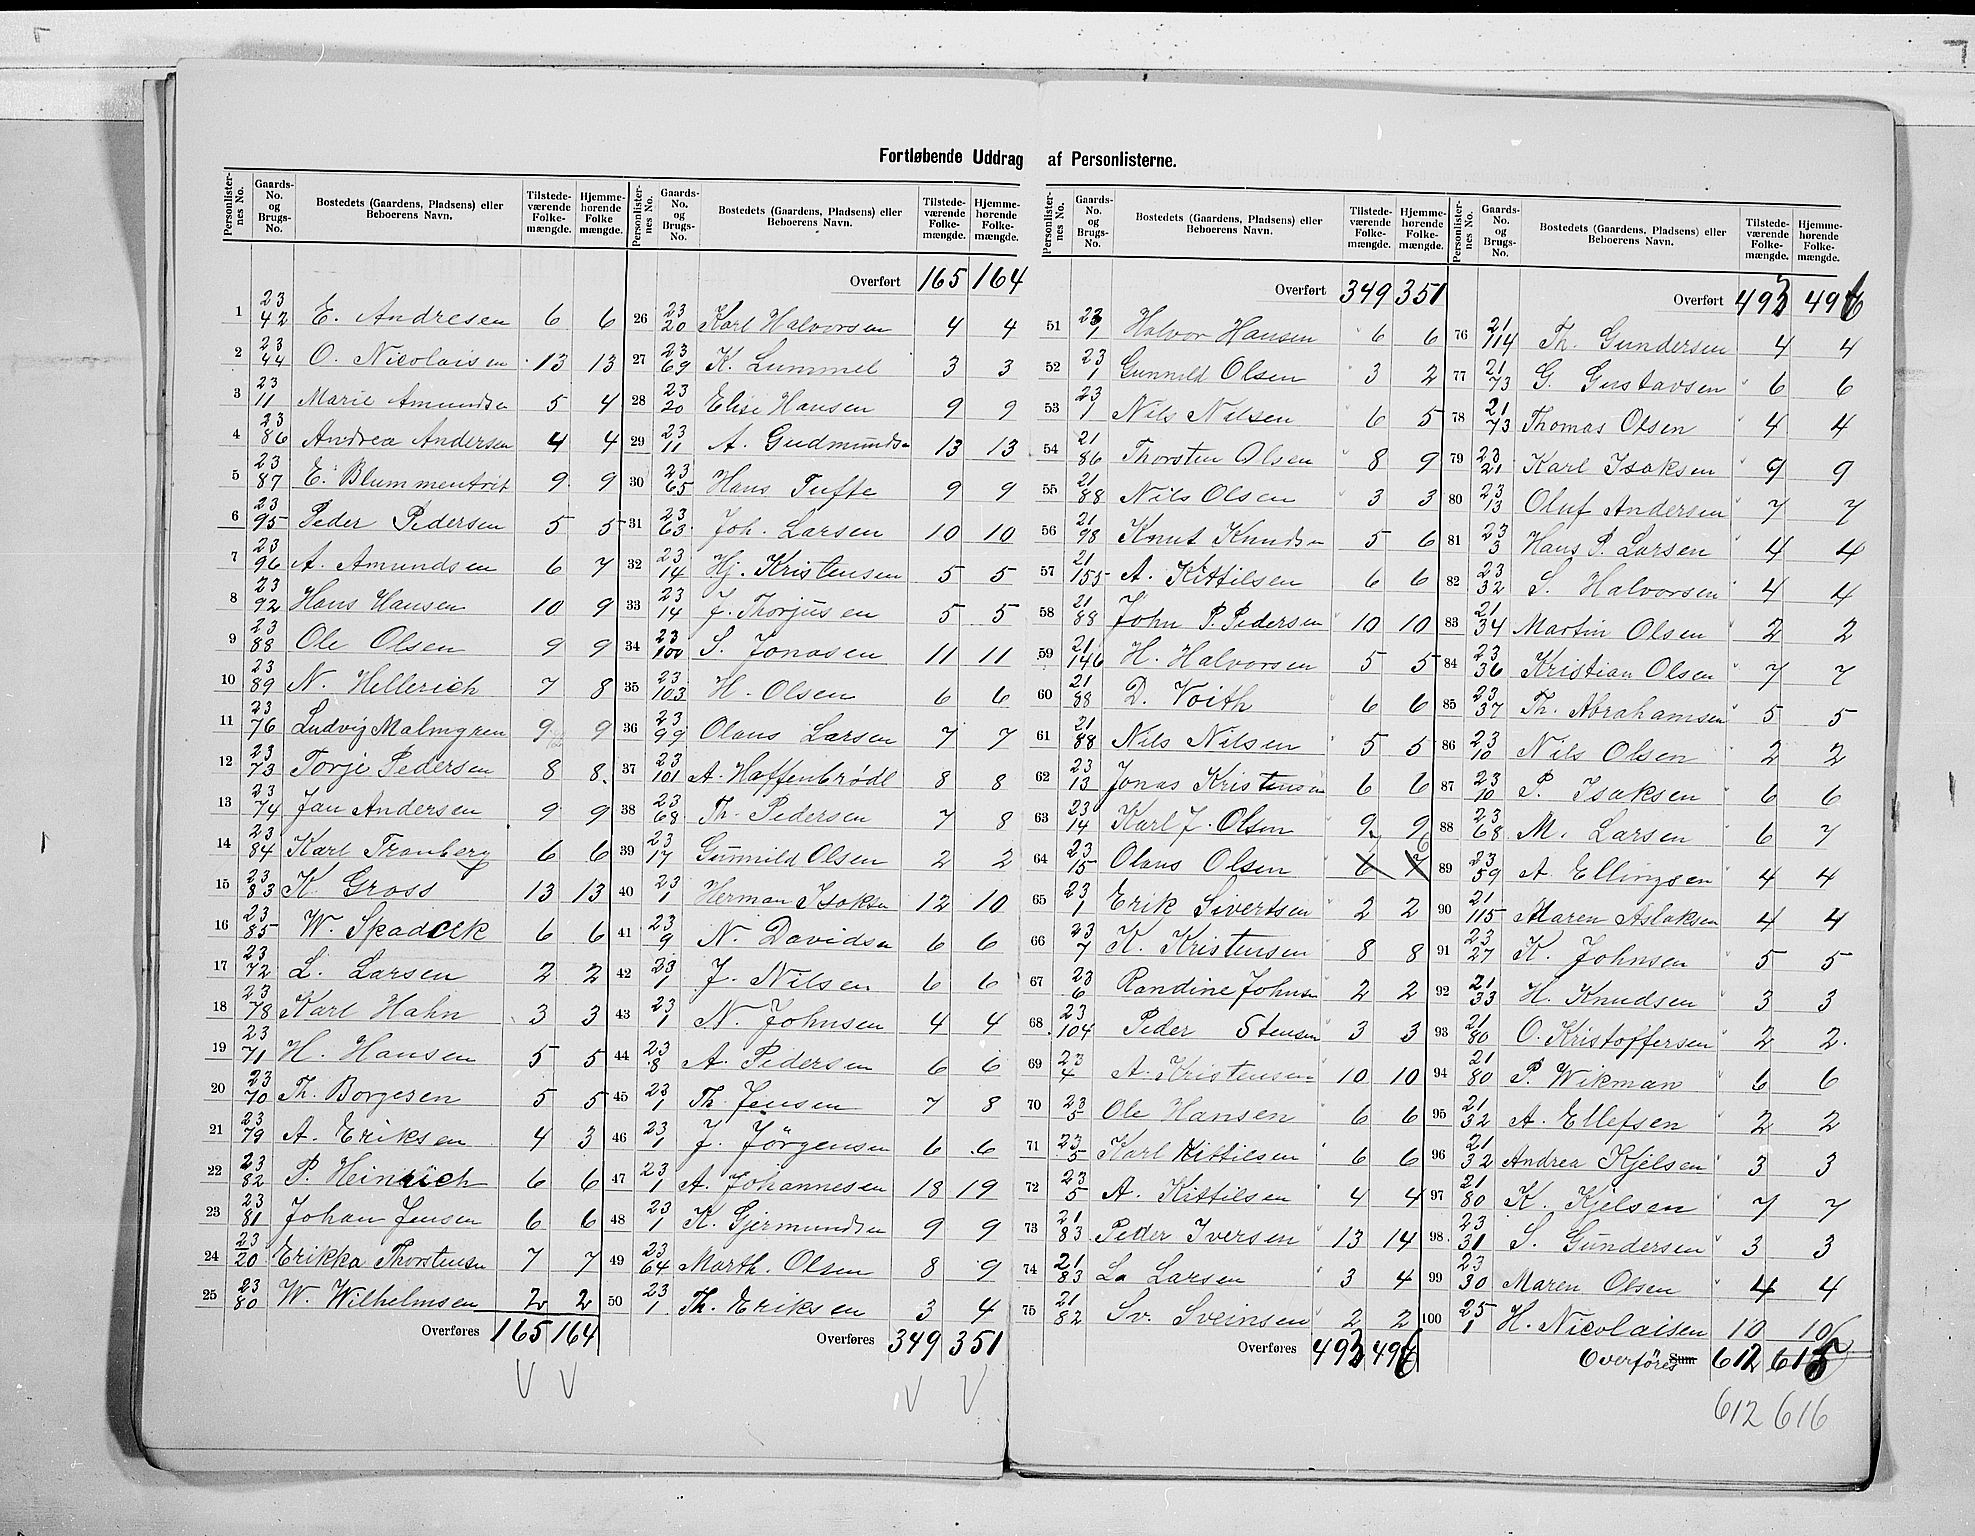 Fortløbende Uddrag af Personlisterne.
Personlister-nes No. | Gaards-No. og Brugs-No. | Bostedets (Gaardens, Pladsens) eller Beboerens Navn. | Tilstede-værende Folke-mængde. | Hjemme-hørende Folke mængde.
1 23/42 E. Andresen 6 6
2 23/44 O. Nicolaisen 13 13
3 23/11 Marie Amundsn 5 4
4 23/86 Andrea Andersen 4 4
5 23/87 E. Blummentrit 9 9
6 23/95 Peder Pedersen 5 5
7 23/96 A. Amundsen 6 7
8 23/92 Hans Hansen 10 9
9 23/88 Ole Olsen 9 9
10 23/89 N. Hellerich 7 8
11 23/76 Ludvig Malmgren 9 9
12 23/73 Torje Pedersen 8 8.
13 23/74 Jan Andersen 9 9
14 23/84 Karl Tranberg 6 6
15 23/83 K. Gross 13 13
16 23/85 W. Skadack 6 6
17 23/72 L. Larsen 2 2
18 23/78 Karl Hahn 3 3
19 23/71 H. Hansen 5 5
20 23/70 Th. Borgesen 5 5
21 23/79 A. Eriksen 4 3
22 23/82 P. Heinrich 6 6
23 23/81 Johan Jensen 6 6
24 23/20 Erikka Thorstensn 7 7
25 23/80 W. Wilhelmsen 2 2
Overføres 165 164
Personlister-nes No. | Gaards-No. og Brugs-No. | Bostedets (Gaardens, Pladsens) eller Beboerens Navn. | Tilstede-værende Folke-mængde. | Hjemme-hørende Folke-mængde.
Overført 165 164
26 23/20 Karl Halvorsen 4 4
27 23/69 K. Lummel 3 3
28 23/20 Elise Hansen 9 9
29 23/11 A. Gudmundsn 13 13
30 23/65 Hans Tufte 9 9
31 23/63 Joh. Larsen 10 10
32 23/14 Hj. Kristensen 5 5
33 23/14 J. Thorjusen 5 5
34 23/100 S. Jonasen 11 11
35 23/103 H. Olsen 6 6
36 23/99 Olaus Larsen 7 7
37 23/101 A. Haffenbrödl 8 8
38 23/68 Th. Pedersen 7 8
39 23/17 Gunnild Olsen 2 2
40 23/1 Herman Isaksn 12 10
41 23/9 N. Davidsn 6 6
42 23/1 J. Nilsen 6 6
43 23/1 N. Johnsen 4 4
44 23/8 A. Pedersen 6 6
45 23/1 Th. Jensen 7 8
46 23/1 J. Jörgensen 6 6
47 23/1 A. Johannesen 18 19
48 23/1 K. Gjermundsn 9 9
49 23/64 Marth. Olsen 8 9
50 23/1 Th. Eriksen 3 4
Overføres 349 351
Personlister-nes No. | Gaards-No. og Brugs-No. | Bostedets (Gaardens, Pladsens) eller Beboerens Navn. | Tilstede-værende Folke-mængde. | Hjemme-hørende Folke-mængde.
Overført 349 351
51 23/1 Halvor Hansen 6 6
52 23/1 Gunnild Olsen 3 2
53 23/1 Nils Nilsen 6 5
54 21/86 Thorsten Olsen 8 9
55 21/88 Nils Olsen 3 3
56 21/98 Knut Knudsn 5 6
57 21/155 A. Kittilsen 6 6
58 21/88 John P. Pedersen 10 10
59 21/146 H. Halvorsen 5 5
60 21/88 D. Voith 6 6
61 21/88 Nils Nilsen 5 5
62 23/13 Jonas Kristensen 6 6
63 23/14 Karl J. Olsen 9 9
64 23/15 Olaus Olsen 6 7
65 23/1 Erik Sivertsen 2 2
66 23/7 K. Kristensen 8 8
67 23/6 Randine Johnsn 2 2
68 23/104 Peder Stensen 3 3
69 23/4 A. Kristensen 10 10
70 23/5 Ole Hansen 6 6
71 23/5 Karl Kittilsen 6 6
72 23/5 A. Kittilsen 4 4
73 21/83 Peder Iversen 13 14
74 21/83 La Larsen 3 4
75 21/82 Sv. Sveinsen 2 2
Overføres 493 496
Personlister-nes No. | Gaards-No. og Brugs-No. | Bostedets (Gaardens, Pladsens) eller Beboerens Navn. | Tilstede-værende Folke-mængde. | Hjemme-hørende Folke-mængde.
Overført 493 496
76 21/114 Th. Gundersen 4 4
77 21/73 G. Gustavsen 6 6
78 21/73 Thomas Olsen 4 4
79 23/21 Karl Isaksen 9 9
80 23/13 Oluf Andersen 7 7
81 23/3 Hans P. Larsen 4 4
82 23/32 S. Halvorsen 4 4
83 21/34 Martin Olsen 2 2
84 23/36 Kristian Olsen 7 7
85 23/37 Th. Abrahamsen 5 5
86 23/10 Nils Olsen 2 2
87 23/10 P. Isaksen 6 6
88 23/68 M. Larsen 6 7
89 23/59 A. Ellingsen 4 4
90 21/115 Maren Aslaksen 4 4
91 23/27 K. Johnsen 5 5
92 21/33 H. Knudsen 3 3
93 21/80 O. Kristoffersen 2 2.
94 21/80 P. Wikman 6 6
95 21/32 A. Ellefsen 2 2
96 21/32 Andrea Kjelsen 3 3
97 21/80 K. Kjelsen 7 7
98 23/31 S. Gundersen 3 3
99 23/30 Maren Olsen 4 4
100 25/1 H. Nicolaisen 10 10
Overföres Sum 612 615
612 616